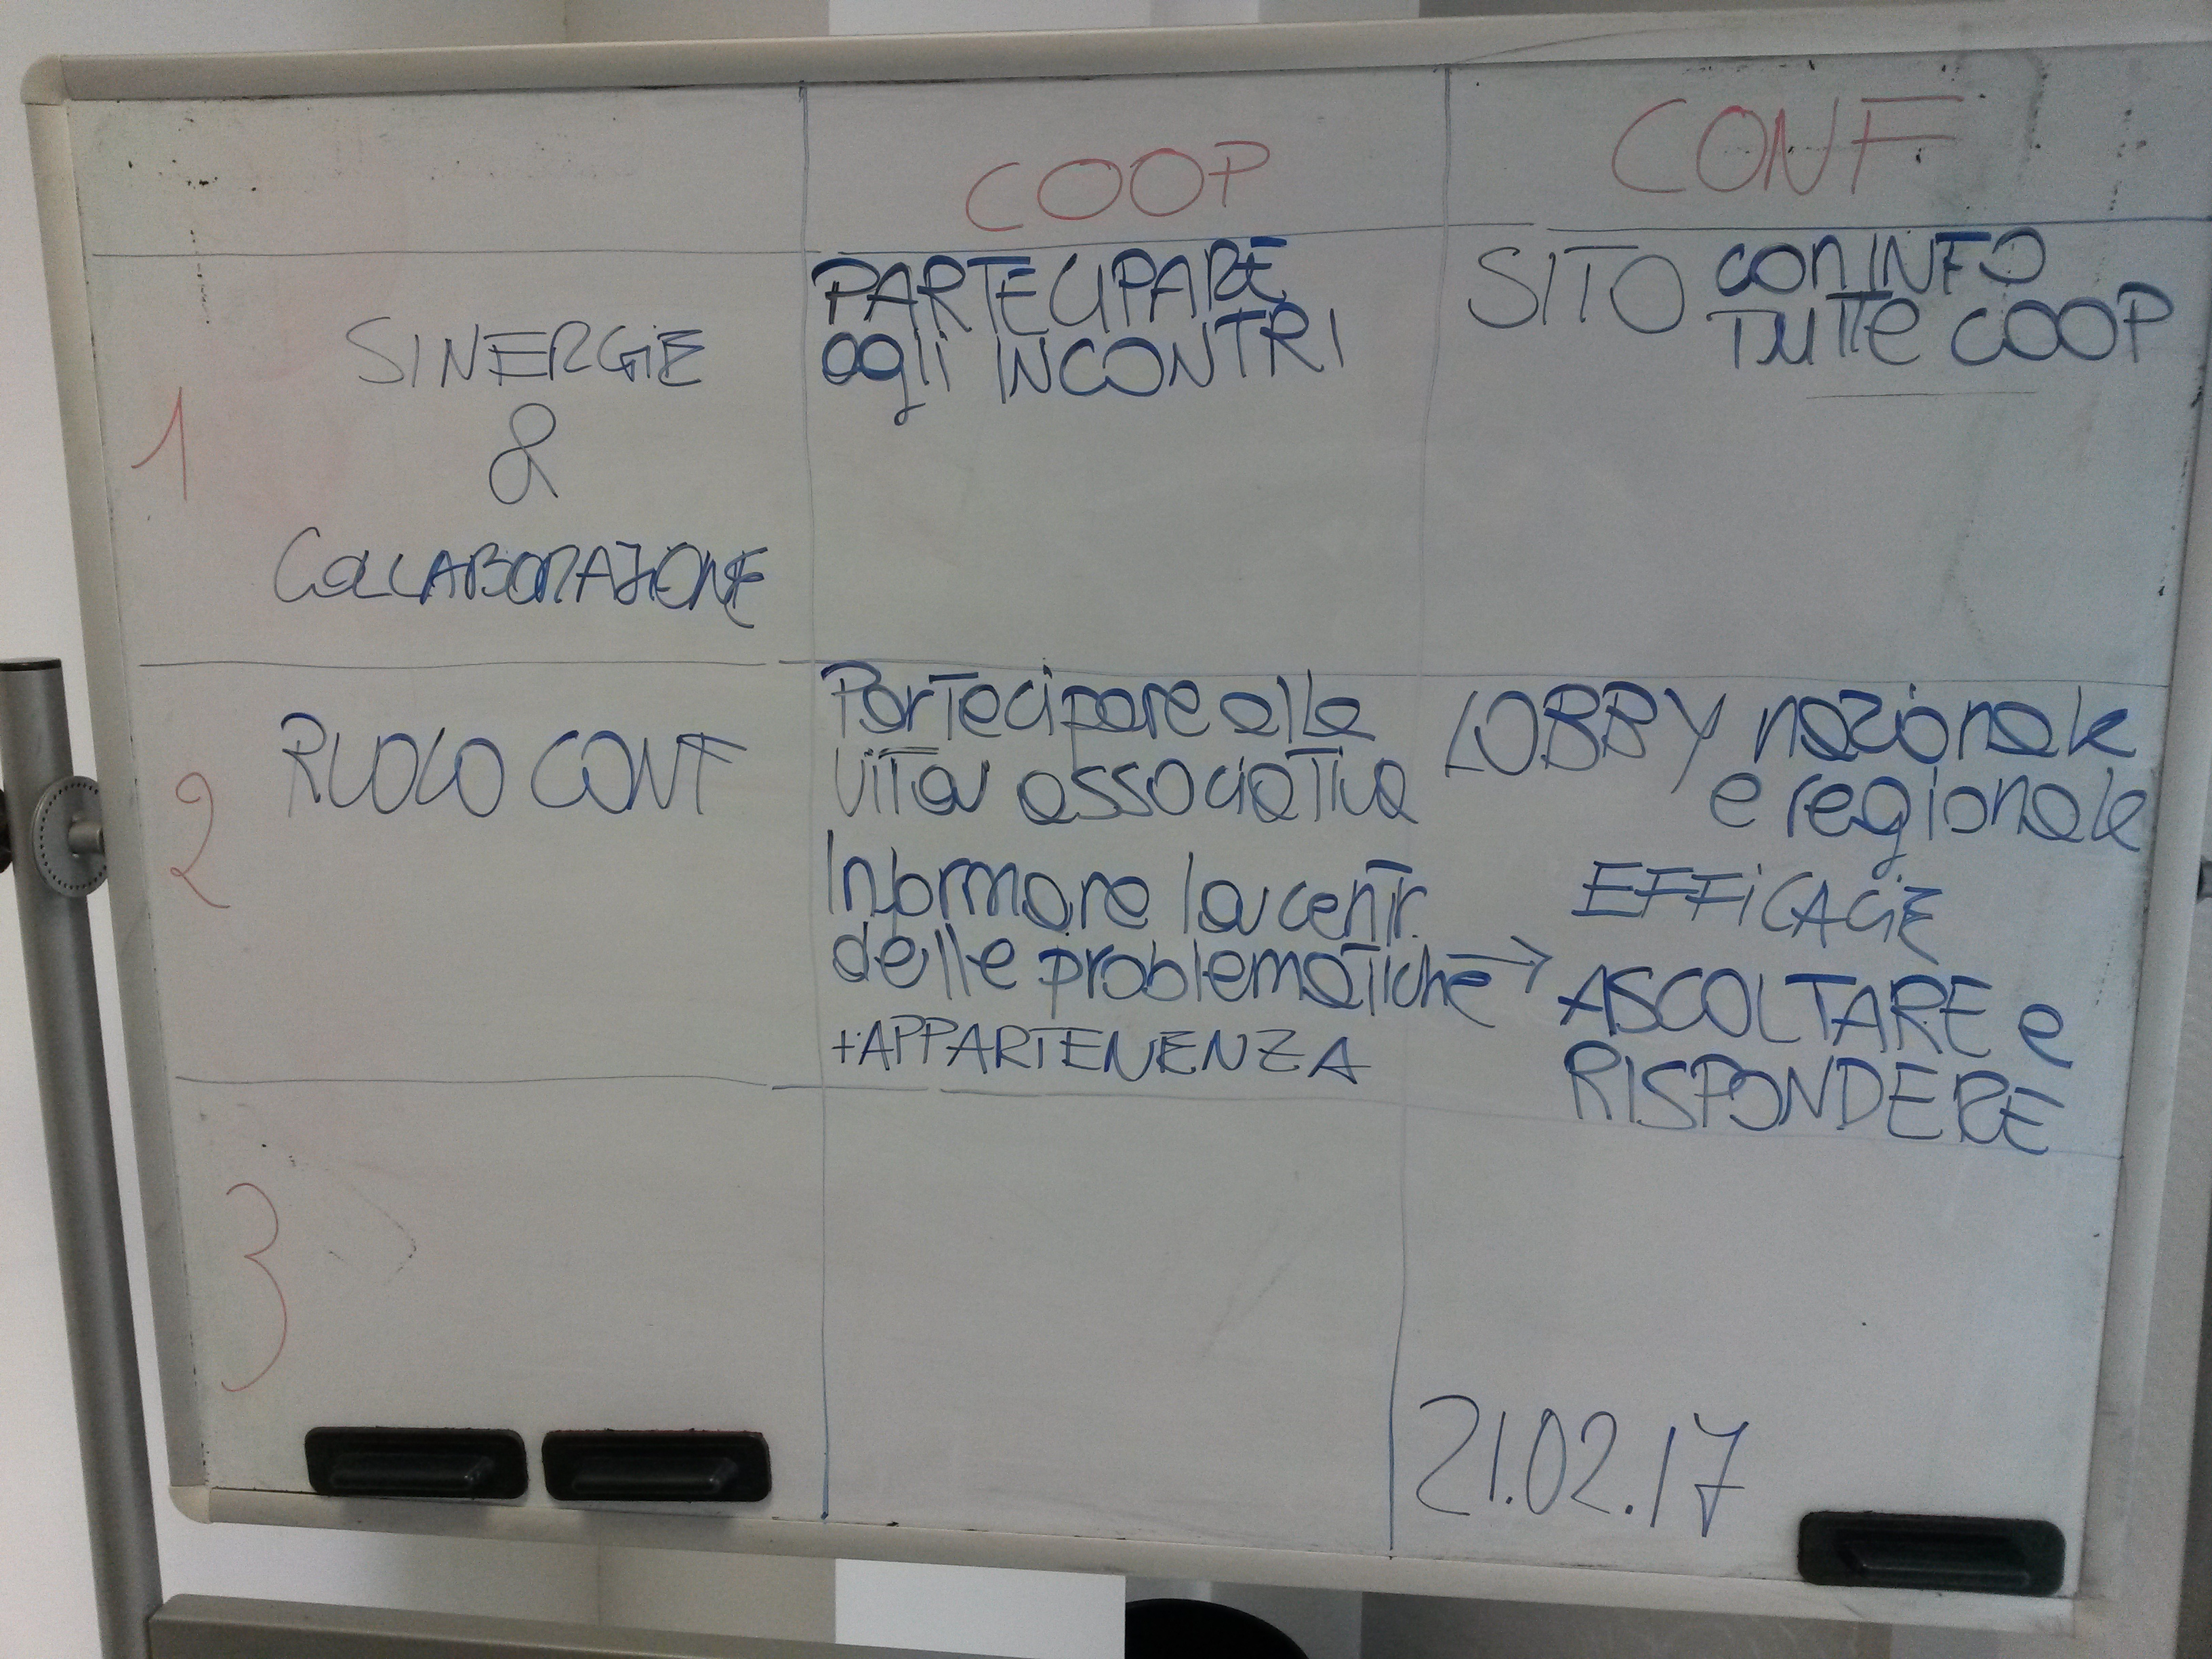 COOP
CONF
1
SINERGIE
&
COLLABORAZIONE
PARTECIPARE
agli INCONTRI
SITO con INFO
TUTTE COOP
2
RUOLO CONF
Partecipare alla
vita associativa
Informare la centr.
delle problematiche →
+APPARTENENZA
LOBBY nazionale
e regionale
EFFICACIE
ASCOLTARE e
RISPONDERE
3
21.02.17